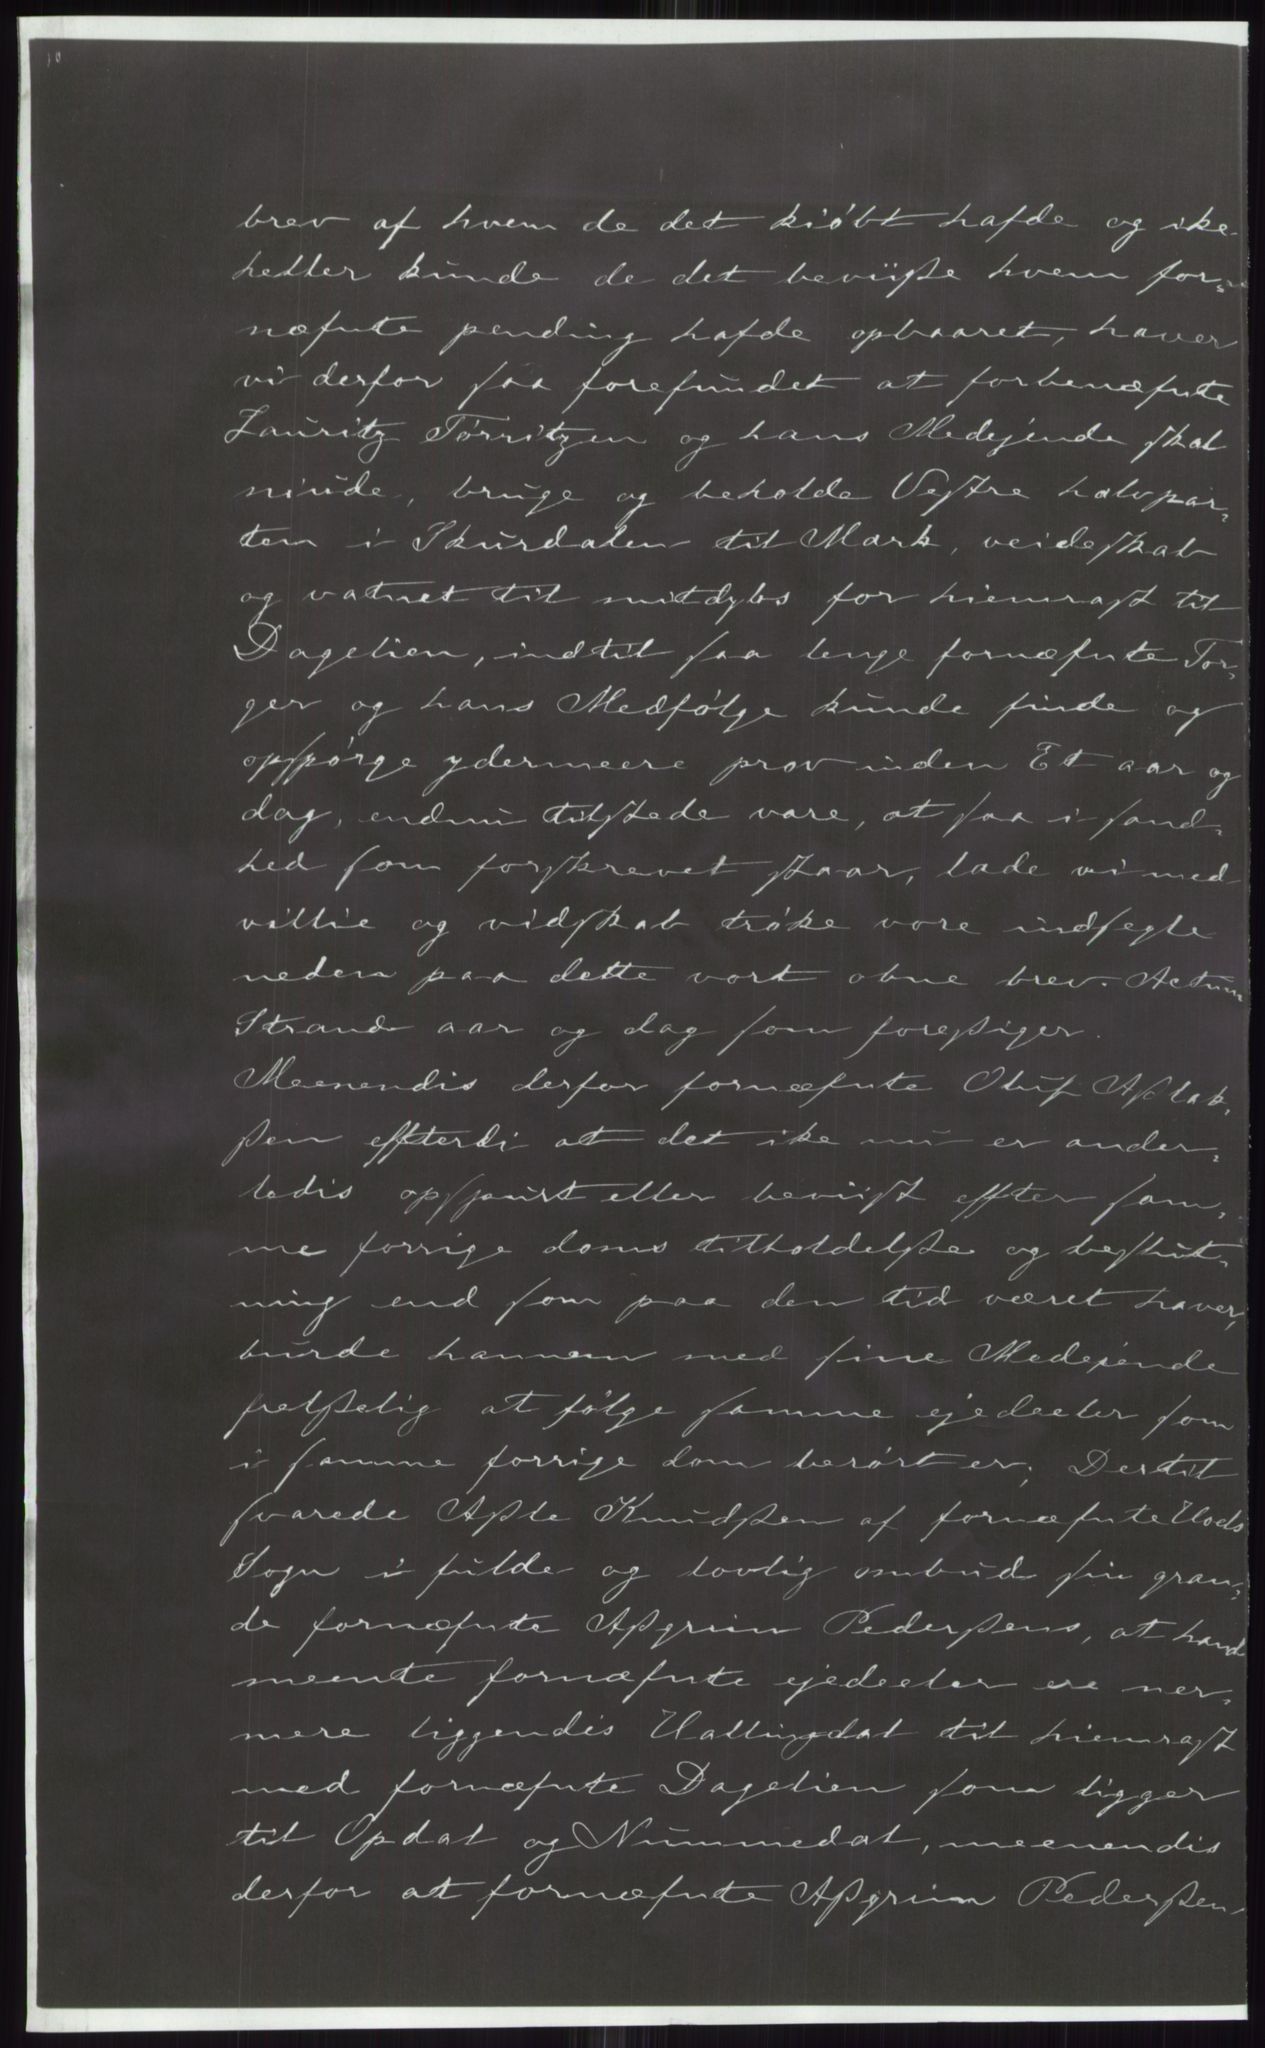 brev af hvem de det kiøbt hafde og ike
heller kunde de det beviiße hvem for-
næfnte pending hafde opbaaret, haver
vi derfor saa forefundet at forbenæfnte
Lauritz Tørritzen og hans Medejende skal
niude, bruge og beholde Vestre halvpar-
ten i Skurdalen til Mark, veideskab
og vatnet til mitdybs for hiemrast til
Dagelien, indtil saa lenge fornæfnte Tor-
ger og hans Medfølge kunde finde og
opspørge ydermeere prov inden Et aar og
dag, endnu tilstede vare, at saa i sand-
hed som forskrevet staar, lade vi med
villie og vidskab trøke vore indsegle
neden paa dette vort obne brev. Actum
Strand aar og dag som foresiger.
Meenendis derfor fornæfnte Oluf Aßlak-
ßen effterdi at det ike nu er ander-
ledis opspurt eller beviist effter sam-
me forrige doms tilholdelße og beslut-
ning end som paa den tid været haver,
burde hannem med sine Medejende
frelßelig at følge samme ejedeeler som
i samme forrige dom berørt er; Dertil
svarede Aßle Knudßen af fornæfnte Hols
Sogn i fulde og lovlig ombud sin gran-
de fornæfnte Aßgrim Pederßens, at hand
meente fornæfnte ejedeeler ere ner-
mere liggendis Hallingdal til hiemrast
med fornæfnte Dagelien som ligger
til Opdal og Nummedal, meenendis
derfor at fornæfnte Aßgrim Pederßen